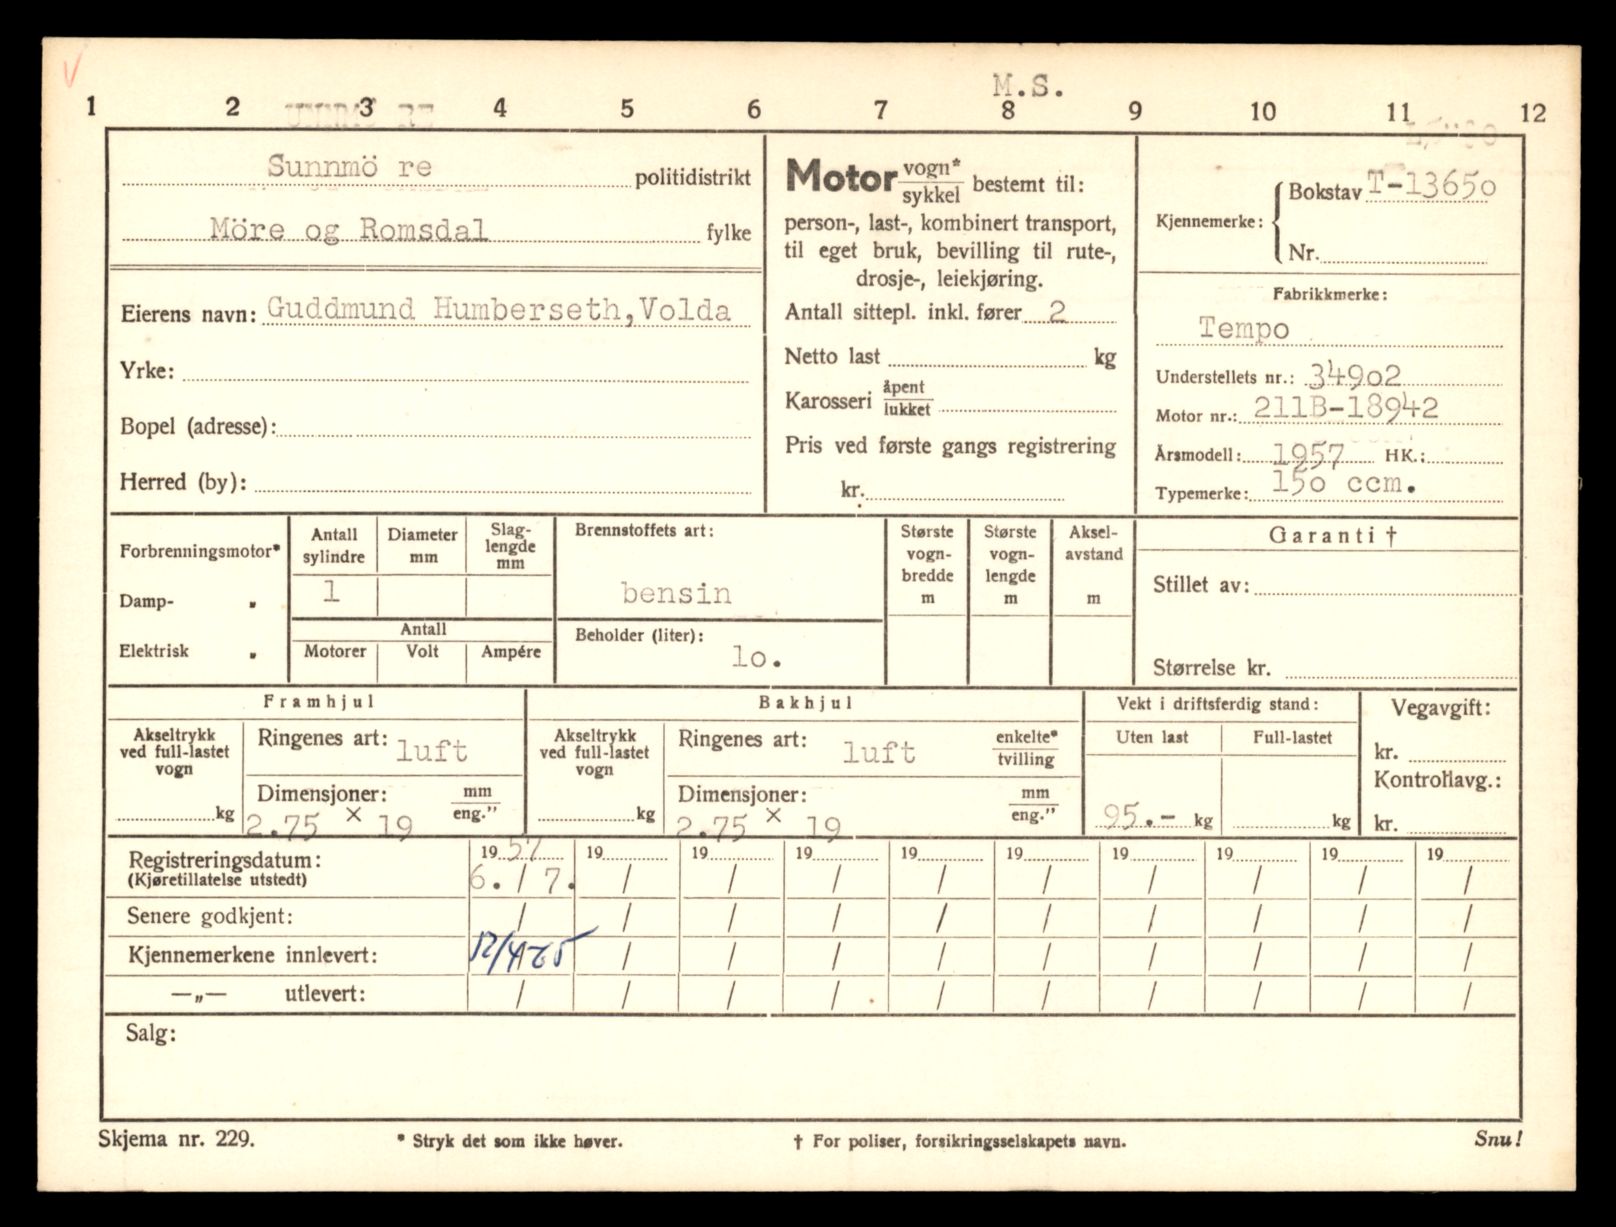 M.S.
1 2 3 4 5 6 7 8 9 10 11 12
Sunnmö re politidistrikt
Möre og Romsdal fylke
Eierens navn: Guddmund Humberseth, Volda
Yrke:
Bopel (adresse):
Herred (by):
Motor vogn* / sykkel bestemt til:
person-, last-, kombinert transport,
til eget bruk, bevilling til rute-,
drosje-, leiekjøring.
Antall sittepl. inkl. fører 2
Netto last kg
Karosseri åpent / lukket
Pris ved første gangs registrering
kr.
Kjennemerke: { Bokstav T-1365o
Nr.
Fabrikkmerke:
Tempo
Understellets nr.: 349o2
Motor nr.: 211B-18942
Årsmodell: 1957 HK.:
Typemerke: 15o ccm.
Forbrenningsmotor*
Damp- „
Elektrisk „
Antall sylindre
Diameter mm
Slag-lengde mm
1
Antall
Motorer Volt Ampére
Brennstoffets art:
bensin
Beholder (liter):
lo.
Største vogn-bredde m
Største vogn-lengde m
Aksel-avstand m
Garanti †
Stillet av:
Størrelse kr.
Framhjul
Akseltrykk ved full-lastet vogn
kg
Ringenes art: luft
Dimensjoner: mm / eng."
2.75 × 19
Bakhjul
Akseltrykk ved full-lastet vogn
kg
Ringenes art: luft enkelte* / tvilling
Dimensjoner: mm / eng."
2.75 × 19
Vekt i driftsferdig stand:
Uten last Full-lastet
95.- kg kg
Vegavgift:
kr.
Kontrollavg.:
kr.
Registreringsdatum: 19 57 19 19 19 19 19 19 19 19 19
(Kjøretillatelse utstedt) 6. / 7. / / / / / / / / /
Senere godkjent: / / / / / / / / / /
Kjennemerkene innlevert: / / / / / / / / /
—„— utlevert: / / / / / / / / / /
Salg:
Skjema nr. 229. * Stryk det som ikke høver. † For poliser, forsikringsselskapets navn. Snu!